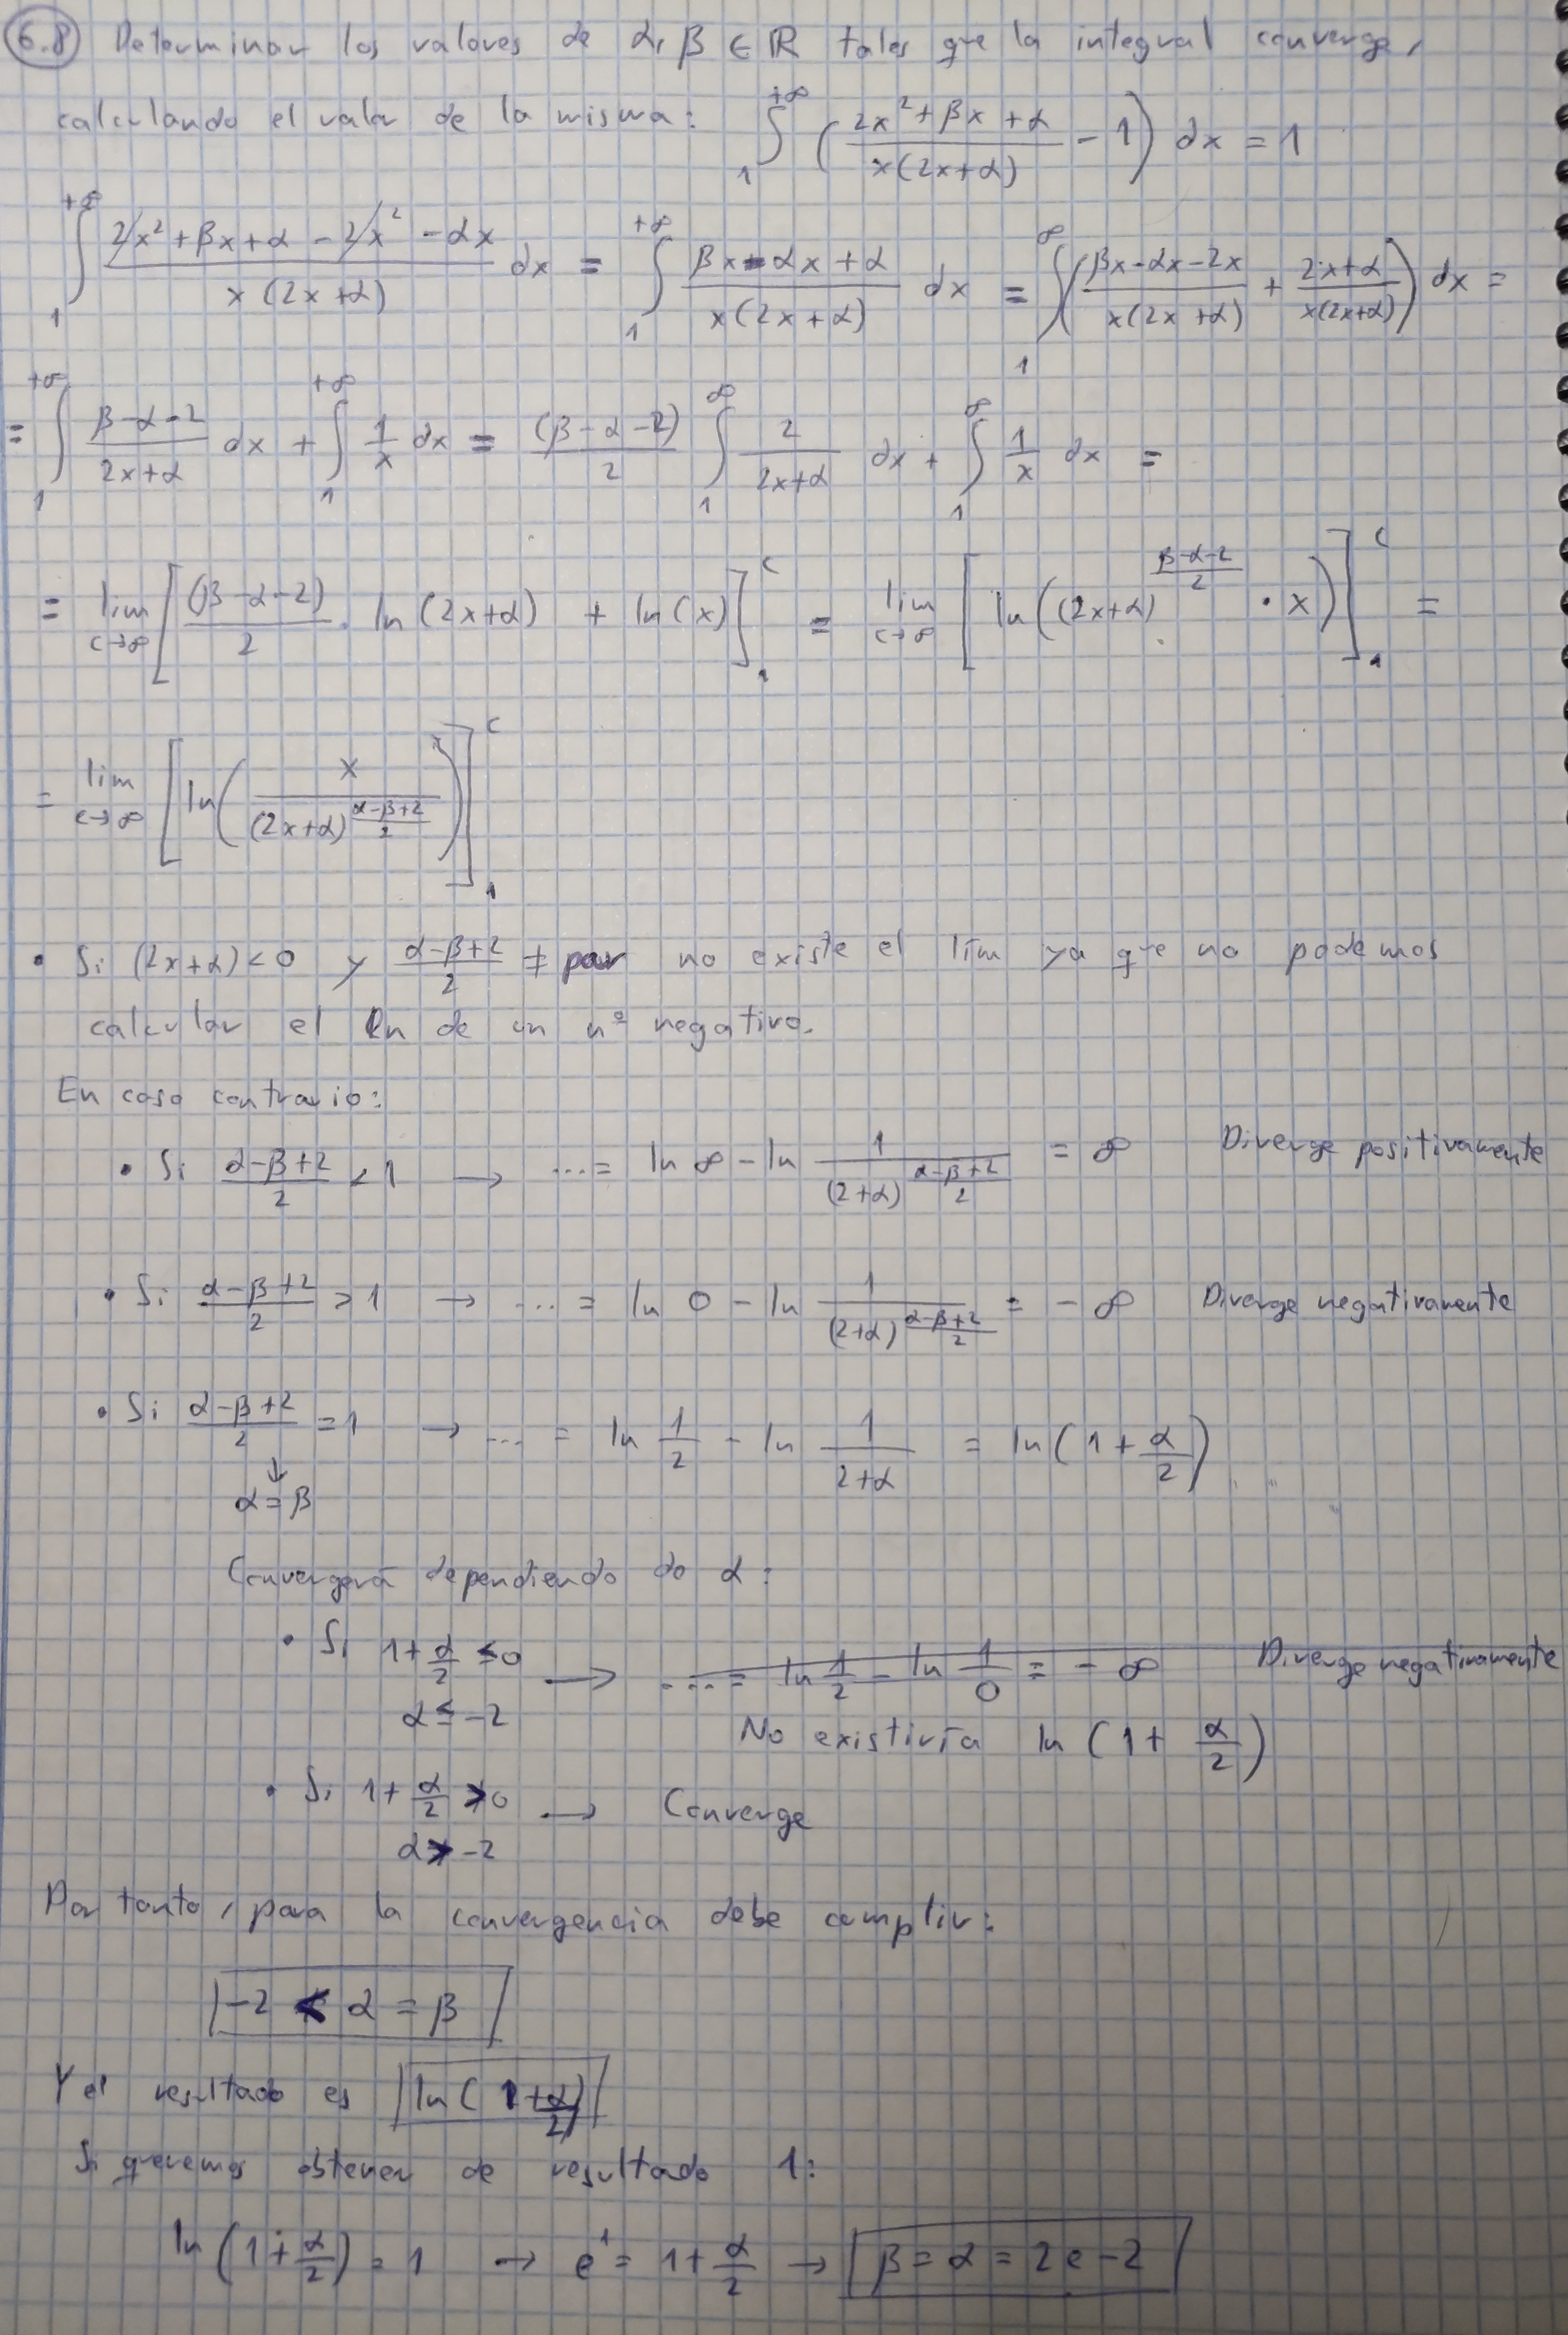 6.8 Determinar los valores de α, β ∈ ℝ tales que la integral converge,
calculando el valor de la misma: ∫₁^{+∞} ( (2x²+βx+α)/(x(2x+α)) - 1 ) dx = 1
∫₁^{+∞} (2x²+βx+α-2x²-αx)/(x(2x+α)) dx = ∫₁^{+∞} (βx-αx+α)/(x(2x+α)) dx = ∫₁^{∞} ( (βx-αx-2x)/(x(2x+α)) + (2x+α)/(x(2x+α)) ) dx =
= ∫₁^{+∞} (β-α-2)/(2x+α) dx + ∫₁^{+∞} 1/x dx = (β-α-2)/2 ∫₁^{∞} 2/(2x+α) dx + ∫₁^{∞} 1/x dx =
= lim_{c→∞} [ (β-α-2)/2 · ln(2x+α) + ln(x) ]₁^c = lim_{c→∞} [ ln( (2x+α)^{(β-α-2)/2} · x ) ]₁^c =
= lim_{c→∞} [ ln( x/(2x+α)^{(α-β+2)/2} ) ]₁^c
• Si (2x+α)<0 y (α-β+2)/2 ≠ par no existe el lím ya que no podemos
calcular el ln de un nº negativo.
En caso contrario:
• Si (α-β+2)/2 < 1 → ...= ln ∞ - ln 1/(2+α)^{(α-β+2)/2} = ∞ Diverge positivamente
• Si (α-β+2)/2 > 1 → ... = ln 0 - ln 1/(2+α)^{(α-β+2)/2} = -∞ Diverge negativamente
• Si (α-β+2)/2 = 1 → ... = ln 1/2 - ln 1/(2+α) = ln(1+α/2)
↓
α=β
Convergerá dependiendo do α:
• Si 1+α/2 ≤0 → ...= ln 1/2 - ln 1/0 = -∞ Diverge negativamente
α≤-2 No existiría ln(1+α/2)
• Si 1+α/2 >0 → Converge
α>-2
Por tanto, para la convergencia debe cumplir:
-2 < α = β
Y el resultado es ln(1+α/2)
Si queremos obtener de resultado 1:
ln(1+α/2)=1 → e¹= 1+α/2 → β=α=2e-2